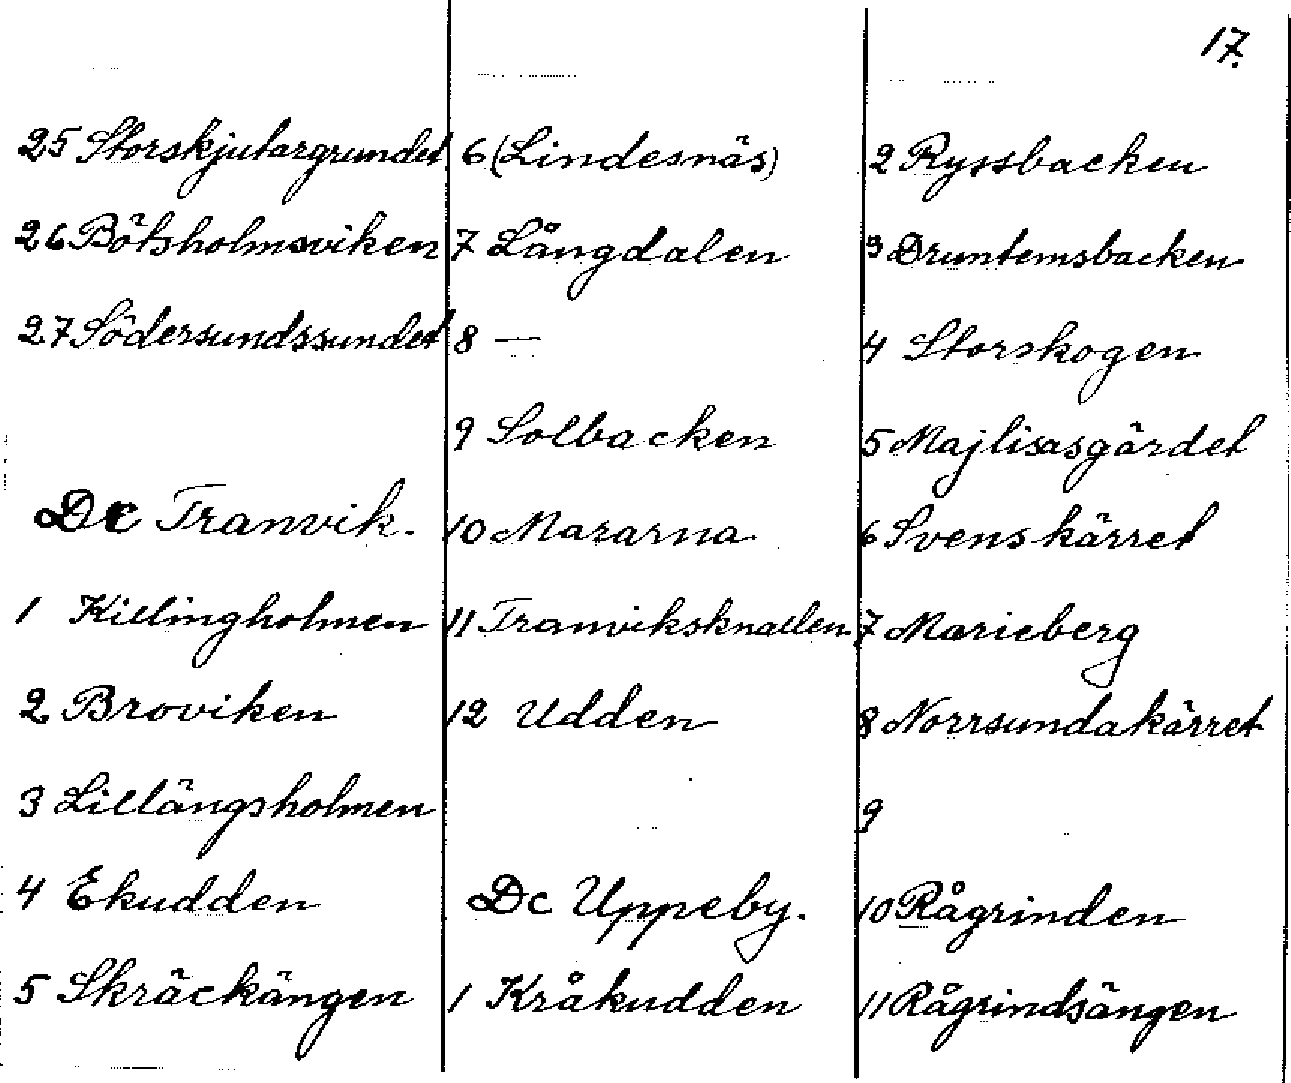 17.
25 Storskjutargrundet
26 Bötsholmsviken
27 Södersundssundet
Dc Tranvik.
1 Killingholmen
2 Broviken
3 Lillängsholmen
4 Ekudden
5 Skräckängen
6 (Lindesnäs)
7 Långdalen
8 —
9 Solbacken
10 Masarna
11 Tranviksknallen
12 Udden
Dc Uppeby.
1 Kråkudden
2 Ryssbacken
3 Druntemsbacken
4 Storskogen
5 Majlisasgärdet
6 Svenskärret
7 Marieberg
8 Norrsundakärret
9
10 Rågrinden
11 Rågrindsängen